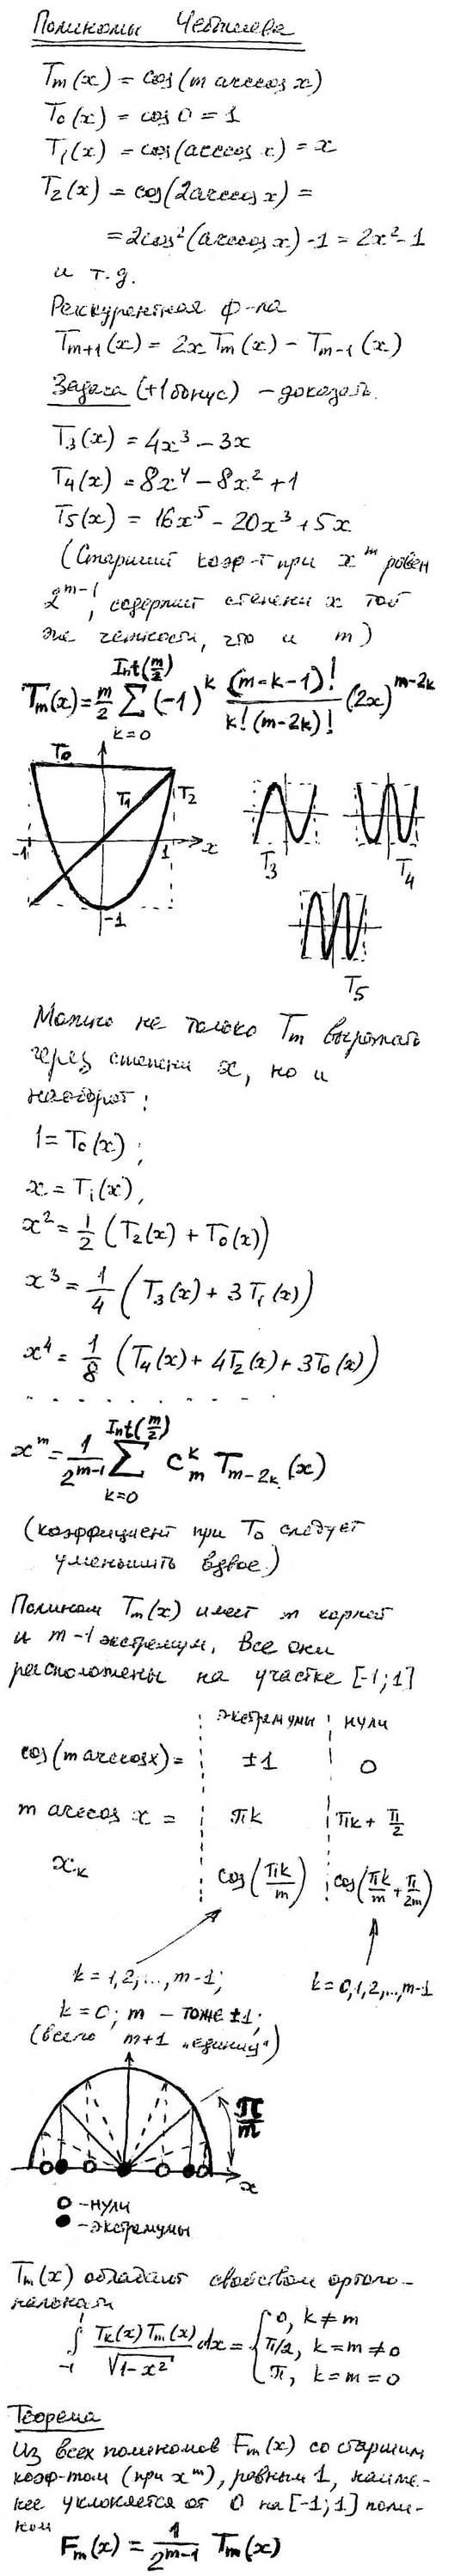 Полиномы Чебышева
Tm(x) = cos(m arccos x)
T0(x) = cos 0 = 1
T1(x) = cos(arccos x) = x
T2(x) = cos(2arccos x) =
= 2cos²(arccos x) - 1 = 2x² - 1
и т.д.
Реккурентная ф-ла
Tm+1(x) = 2x Tm(x) - Tm-1(x)
Задача (+1 бонус) - доказать.
T3(x) = 4x³ - 3x
T4(x) = 8x⁴ - 8x² + 1
T5(x) = 16x⁵ - 20x³ + 5x
(Старший коэф-т при x^m равен
2^(m-1), содержит степени x той
же четности, что и m)
Tm(x) = m/2 Σ (k=0, Int(m/2)) (-1)^k (m-k-1)! / k!(m-2k)! (2x)^(m-2k)
T0
T1 T2
-1 1 x
-1
T3 T4
T5
Можно не только Tm выражать
через степени x, но и
наоборот:
1 = T0(x);
x = T1(x),
x² = 1/2 (T2(x) + T0(x))
x³ = 1/4 (T3(x) + 3T1(x))
x⁴ = 1/8 (T4(x) + 4T2(x) + 3T0(x))
. . . . . . . . . . .
x^m = 1/2^(m-1) Σ (k=0, Int(m/2)) C_m^k Tm-2k(x)
(коэффициент при T0 следует
уменьшить вдвое.)
Полином Tm(x) имеет m корней
и m-1 экстремум. Все они
расположены на участке [-1;1]
экстремумы нули
cos(m arccos x) = ±1 0
m arccos x = πk πk + π/2
xk cos(πk/m) cos(πk/m + π/2m)
k = 1,2,...,m-1; k = 0,1,2,...,m-1
k = 0; m - тоже ±1;
(всего m+1 „единиц")
π/m
x
○ - нули
● - экстремумы
Tm(x) обладают свойством ортого-
нальности
∫ (-1, 1) Tk(x)Tm(x) / √(1-x²) dx = { 0, k≠m
π/2, k=m≠0
π, k=m=0
Теорема
Из всех полиномов Fm(x) со старшим
коэф-том (при x^m), равным 1, наиме-
нее уклоняется от 0 на [-1;1] поли-
ном
Fm(x) = 1/2^(m-1) Tm(x)